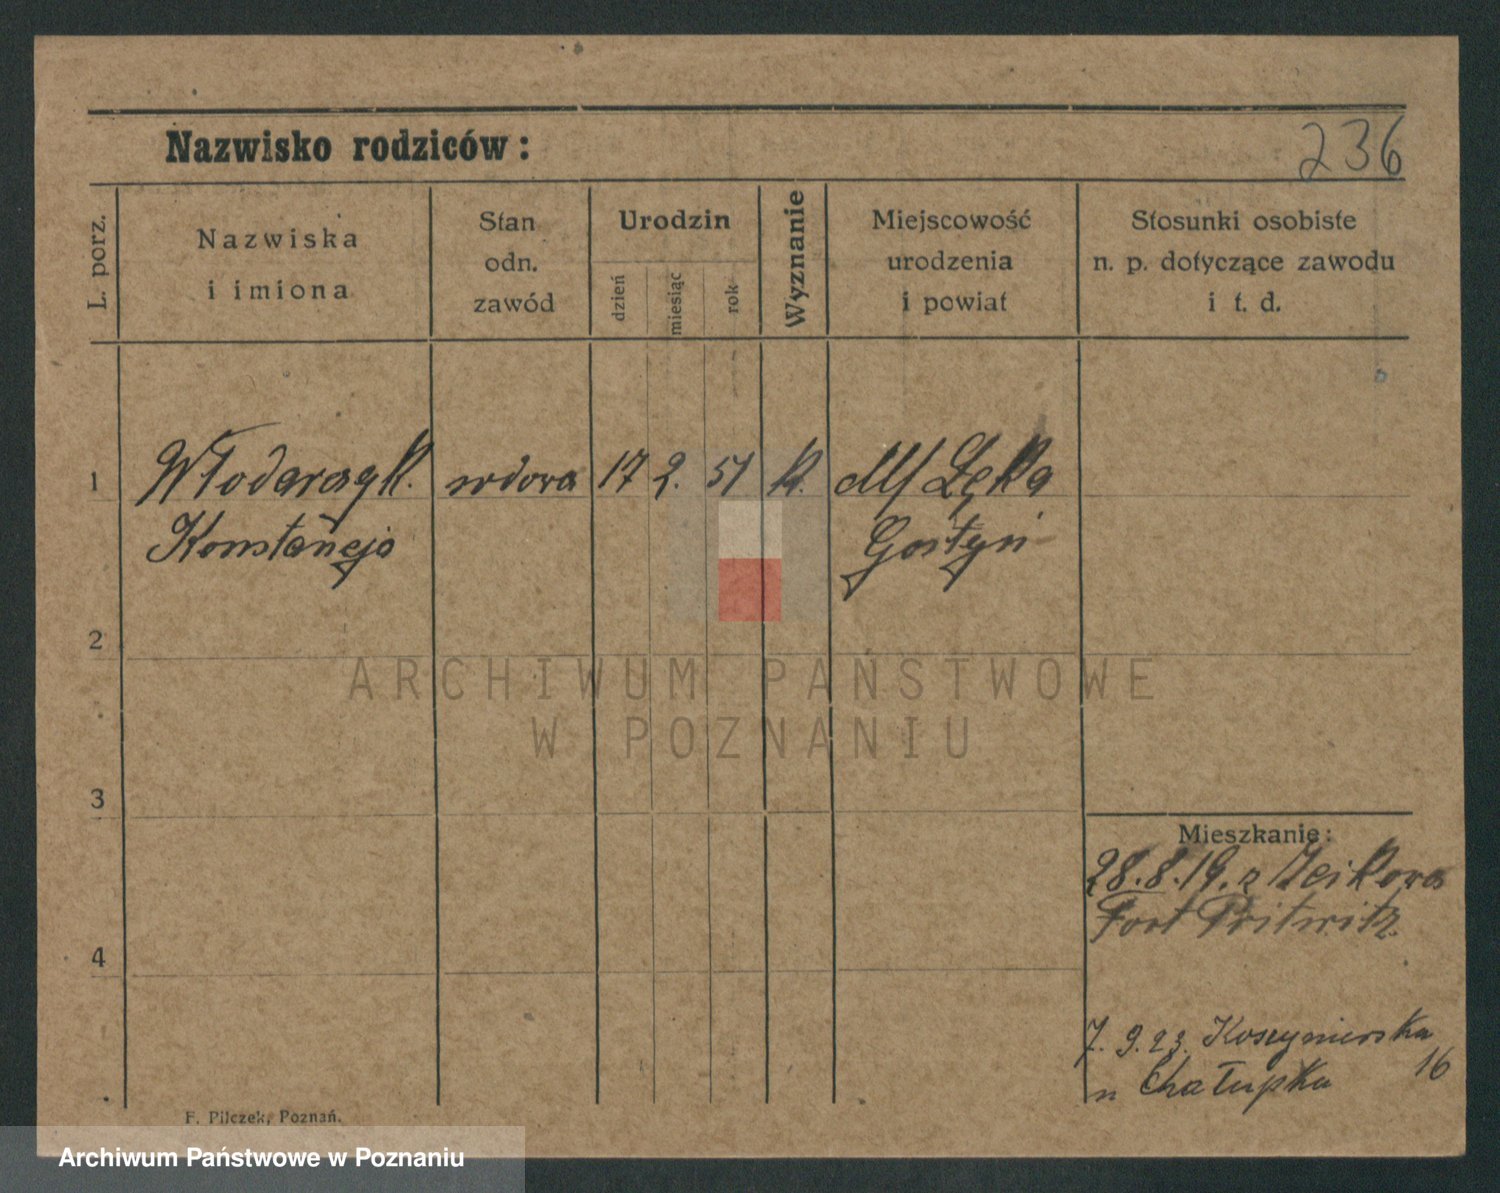 Nazwisko rodziców:
236
L. porz.
Nazwiska
i imiona
Stan
odn.
zawód
Urodzin
dzień
miesiąc
rok
Wyznanie
Miejscowość
urodzenia
i powiat
Stosunki osobiste
n. p. dotyczące zawodu
i t. d.
1
Włodarczyk.
wdowa
17
2.
51
k.
M/ Łęka
Konstancja
Gostyń
2
ARCHIWUM PAŃSTWOWE
W POZNANIU
3
Mieszkanie:
28.8.19. z
Fort Pritwitz
4
7. 9. 23. Koszynierska
16
n Chałupka
F. Pilczek, Poznań.
Archiwum Państwowe w Poznaniu